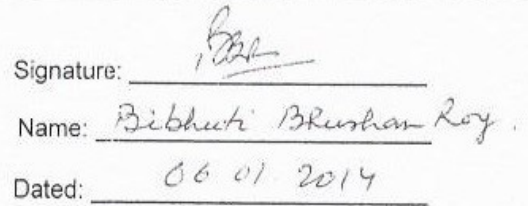 Signature: BBR
Name: Bibhuti Bhushan Roy.
Dated: 06 01 2014